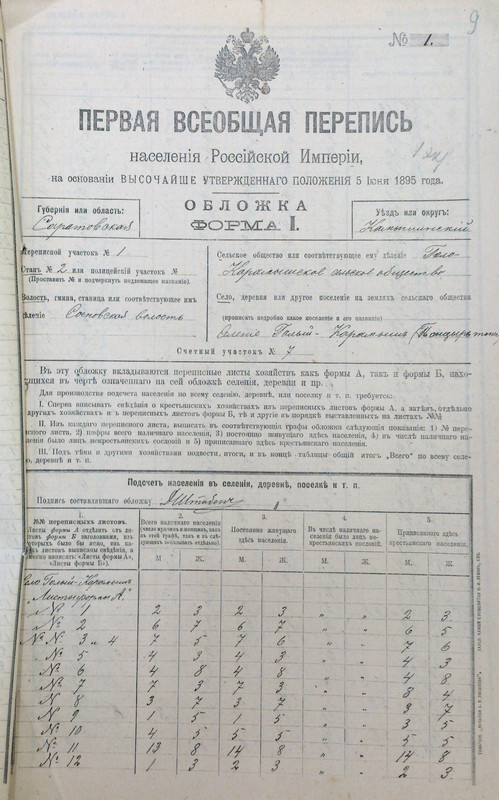 9
№ 1.
ПЕРВАЯ ВСЕОБЩАЯ ПЕРЕПИСЬ
населенія Россійской Имперіи,
на основаніи ВЫСОЧАЙШЕ УТВЕРЖДЕННАГО ПОЛОЖЕНІЯ 5 Іюня 1895 года.
ОБЛОЖКА
ФОРМА I.
Губернія или область:
Саратовская
Уѣздъ или округъ:
Камышинскій
Переписной участокъ № 1
Станъ № 2 или полицейскій участокъ №
(Проставить № и подчеркнуть подлежащее названіе).
Волость, гмина, станица или соотвѣтствующее имъ
дѣленіе Сосновская волость
Сельское общество или соотвѣтствующее ему дѣленіе Голо-
Карамышское сельское общество
Село, деревня или другое поселеніе на земляхъ сельскаго общества
(прописать подробно какое поселеніе и его названіе)
Селеніе Голый-Карамышъ
Счетный участокъ № 7
Въ эту обложку вкладываются переписные листы хозяйствъ какъ формы А, такъ и формы Б, нахо-
дящихся въ чертѣ означеннаго на сей обложкѣ селенія, деревни и пр.
Для производства подсчета населенія по всему селенію, деревнѣ, или поселку и т. п. требуется:
I. Сперва вписывать свѣдѣнія о крестьянскихъ хозяйствахъ изъ переписныхъ листовъ формы А, а затѣмъ, отдѣльно
о другихъ хозяйствахъ и переписныхъ листовъ формы Б, тѣ и другіе въ порядкѣ выставленныхъ на листахъ №№
II. Изъ каждаго переписного листа, выписать въ соотвѣтствующія графы обложки слѣдующія показанія: 1) № пе-
реписного листа, 2) цифры всего наличнаго населенія, 3) постоянно живущаго здѣсь населенія, 4) въ числѣ наличнаго на-
селенія было лицъ некрестьянскихъ сословій и 5) приписаннаго здѣсь крестьянскаго населенія.
III. Подъ тѣми и другими хозяйствами подвести, итоги, и въ концѣ таблицы общій итогъ „Всего“ по всему селе-
нію, деревнѣ и т. п.
Подсчетъ населенія въ селеніи, деревнѣ, поселкѣ и т. п.
Подпись составлявшаго обложку
1. 2. 3. 4. 5.
№№ переписныхъ листовъ.
Всего наличнаго населенія
Постоянно живущаго
здѣсь населенія.
Въ числѣ наличнаго на-
селенія было лицъ не-
крестьянскихъ сословій.
Приписаннаго здѣсь
крестьянскаго населенія.
М. Ж. М. Ж. М. Ж. М. Ж.
Село Голый-Карамышъ
„Листы формы А.“
№ 1 2 3 2 3 „ „ 2 3
№ 2 6 7 6 7 „ „ 6 5
№ № 3 и 4 7 5 7 6 „ „ 7 6
№ 5 4 3 4 3 „ „ 4 3
№ 6 4 8 4 8 „ „ 4 8
№ 7 7 3 7 3 „ „ 8 4
№ 8 3 7 3 7 „ „ 3 7
№ 9 1 5 1 5 „ „ 3 5
№ 10 4 5 5 5 „ „ 5 5
№ 11 13 8 14 8 „ „ 14 8
№ 12 1 3 2 3 „ „ 2 3